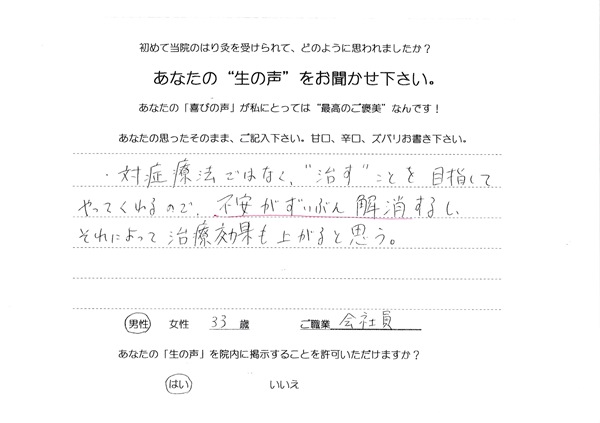 初めて当院のはり灸を受けられて、どのように思われましたか？
あなたの“生の声”をお聞かせ下さい。
あなたの「喜びの声」が私にとっては“最高のご褒美”なんです！
あなたの思ったそのまま、ご記入下さい。甘口、辛口、ズバリお書き下さい。
・対症療法ではなく、“治す”ことを目指して
やってくれるので、不安がずいぶん解消するし、
それによって治療効果も上がると思う。
男性 女性 33 歳 ご職業 会社員
あなたの「生の声」を院内に掲示することを許可いただけますか？
はい いいえ